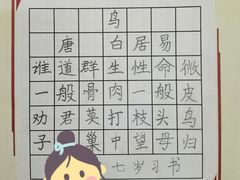 鸟
唐 白居易
谁道群生性命微
一般骨肉一般皮
劝君莫打枝头鸟
子 巢中望母归
七岁习书